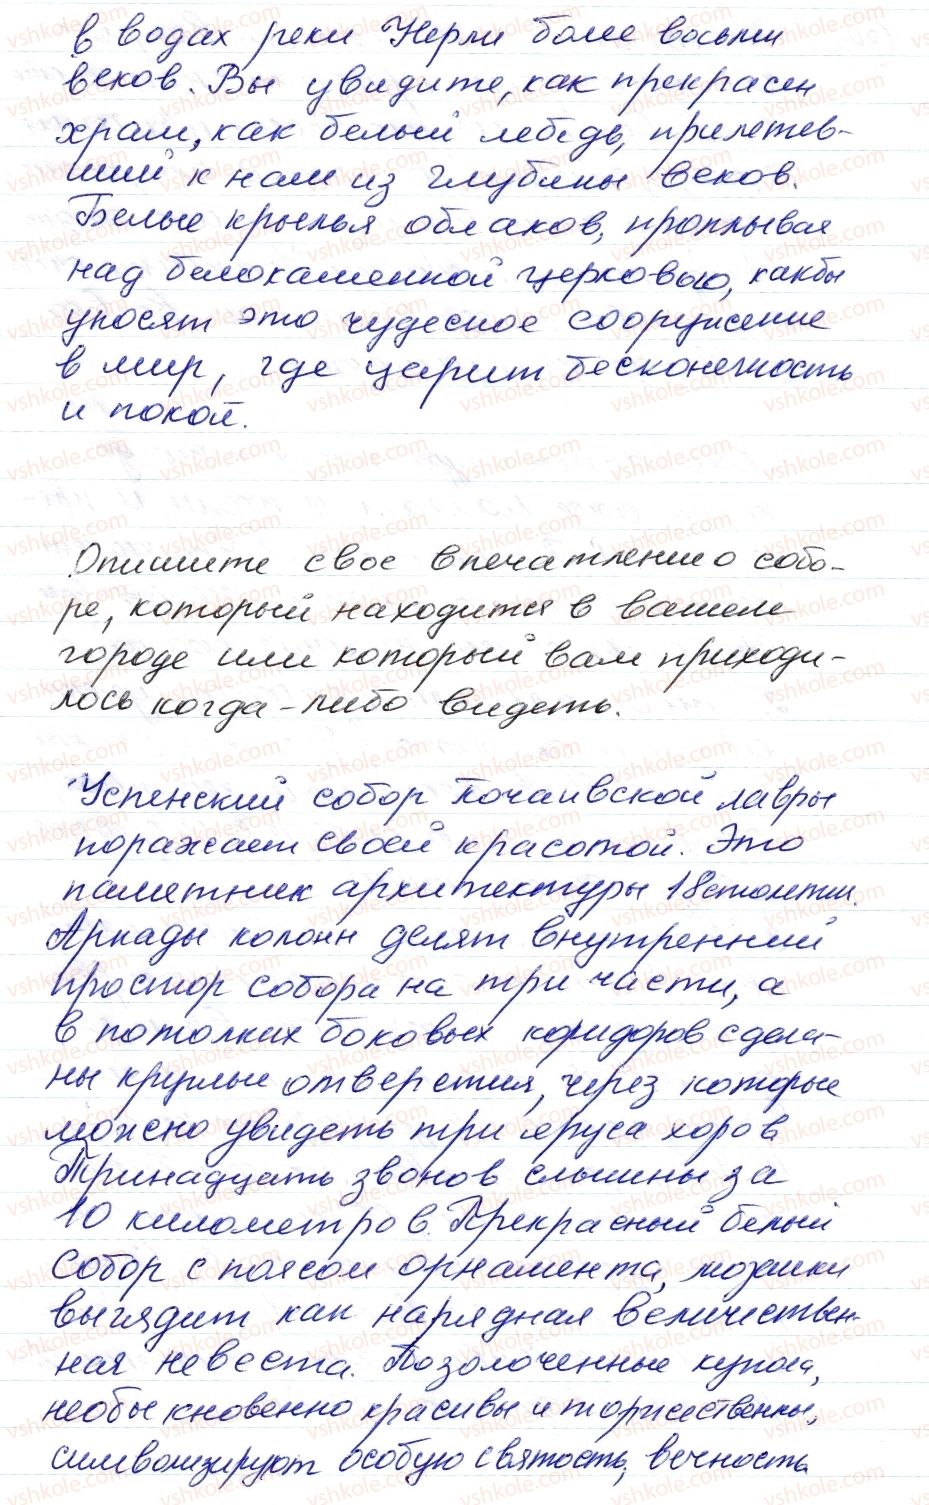 в водах реки Нерли более восьми
веков. Вы увидите, как прекрасен
храм, как белый лебедь, прилетев-
ший к нам из глубины веков.
Белые крылья облаков, проплывая
над белокаменной церковью, как бы
уносят это чудесное сооружение
в мир, где царит бесконечность
и покой.
Опишите свое впечатление о собо-
ре, который находится в вашем
городе или который вам приходи-
лось когда-либо видеть.
Успенский собор Почаивской лавры
поражает своей красотой. Это
памятник архитектуры 18 столетия.
Аркады колонн делят внутренний
простор собора на три части, а
в потолках боковых коридоров сдела-
ны круглые отверстия, через которые
можно увидеть три яруса хоров
Тринадцать звонов слышны за
10 километров. Прекрасный белый
собор с поясом орнамента, мозаики
выглядит как нарядная величествен-
ная невеста. Позолоченные купола,
необыкновенно красивы и торжественны,
символизируют особую святость, вечность